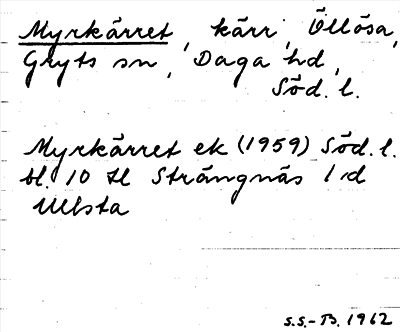 Myrkärret, kärr, Öllösa,
Gryts sn, Daga hd,
Söd. l.
Myrkärret ek (1959) Söd. l.
bl. 10 tl Strängnäs 1 d
Ullsta
S.S.-B. 1962